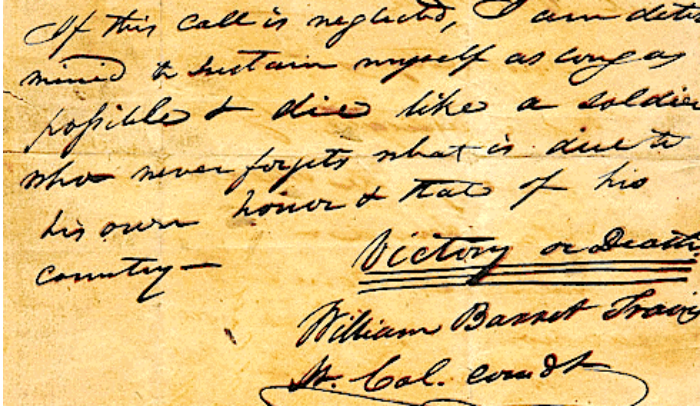 If this call is neglected, I am deter
mined to sustain myself as long as
possible & die like a soldier
who never forgets what is due to
his own honor & that of his
country —
Victory or Death
William Barret Travis
Lt. Col. comdt